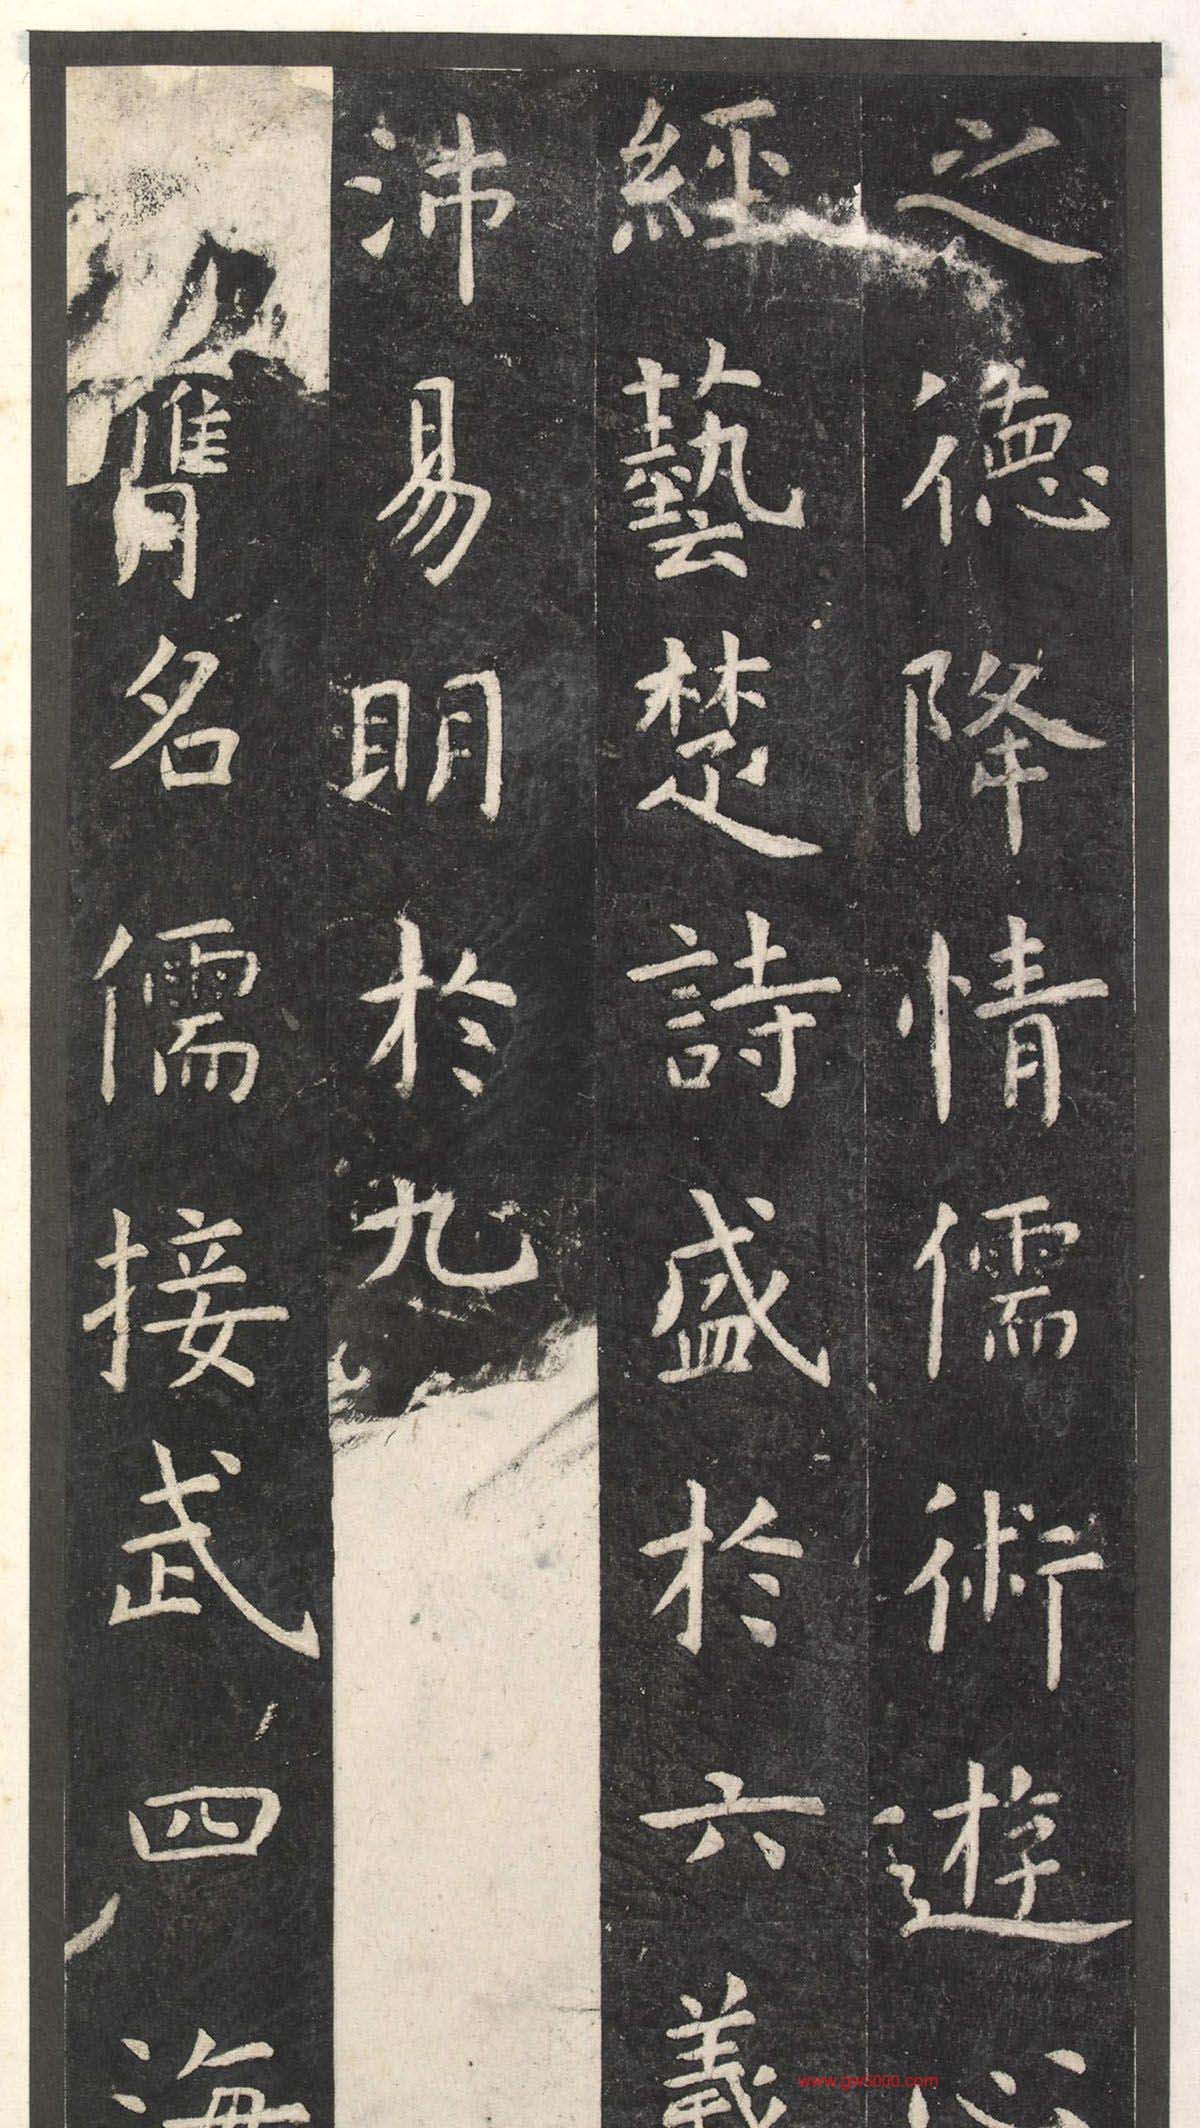 之德降情儒術遊心
經藝楚詩盛於六義
沛易明於九
膺名儒接武四海
www.gw5000.com